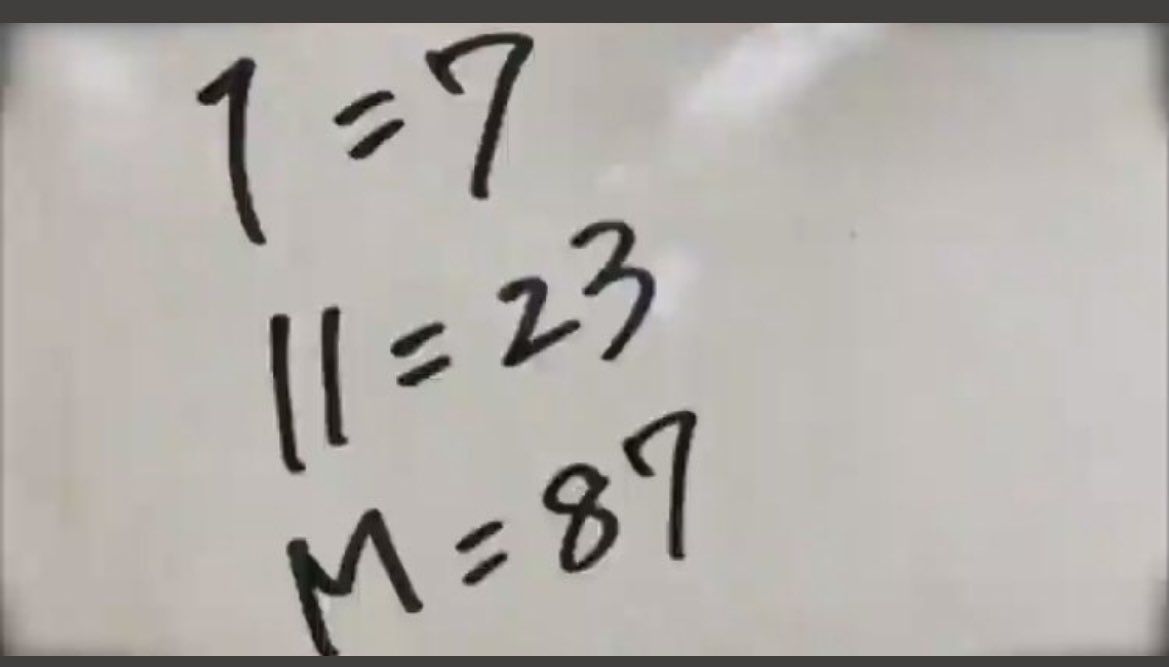 1 = 7
11 = 23
M = 87